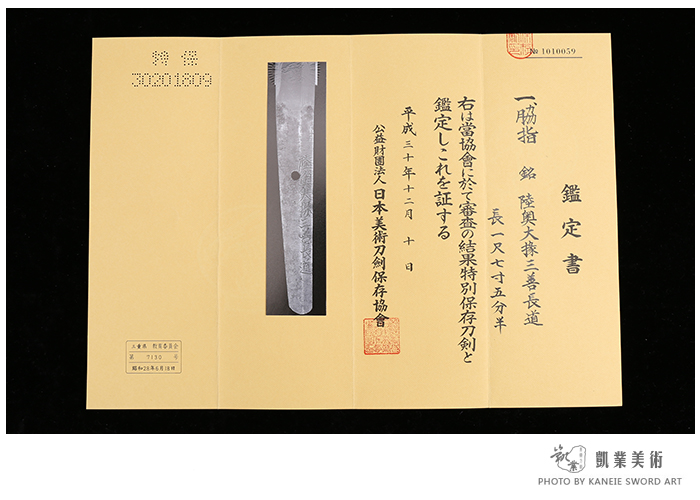 № 1010059
鑑定書
一、脇指 銘 陸奥大掾三善長道
長一尺七寸五分半
右は當協會に於て審査の結果特別保存刀剣と
鑑定しこれを証する
平成三十年十二月十日
公益財團法人日本美術刀劍保存協會
特保
30201809
三重県 教育委員会
第 7190 号
昭和26年6月18日
凱業美術
PHOTO BY KANEIE SWORD ART